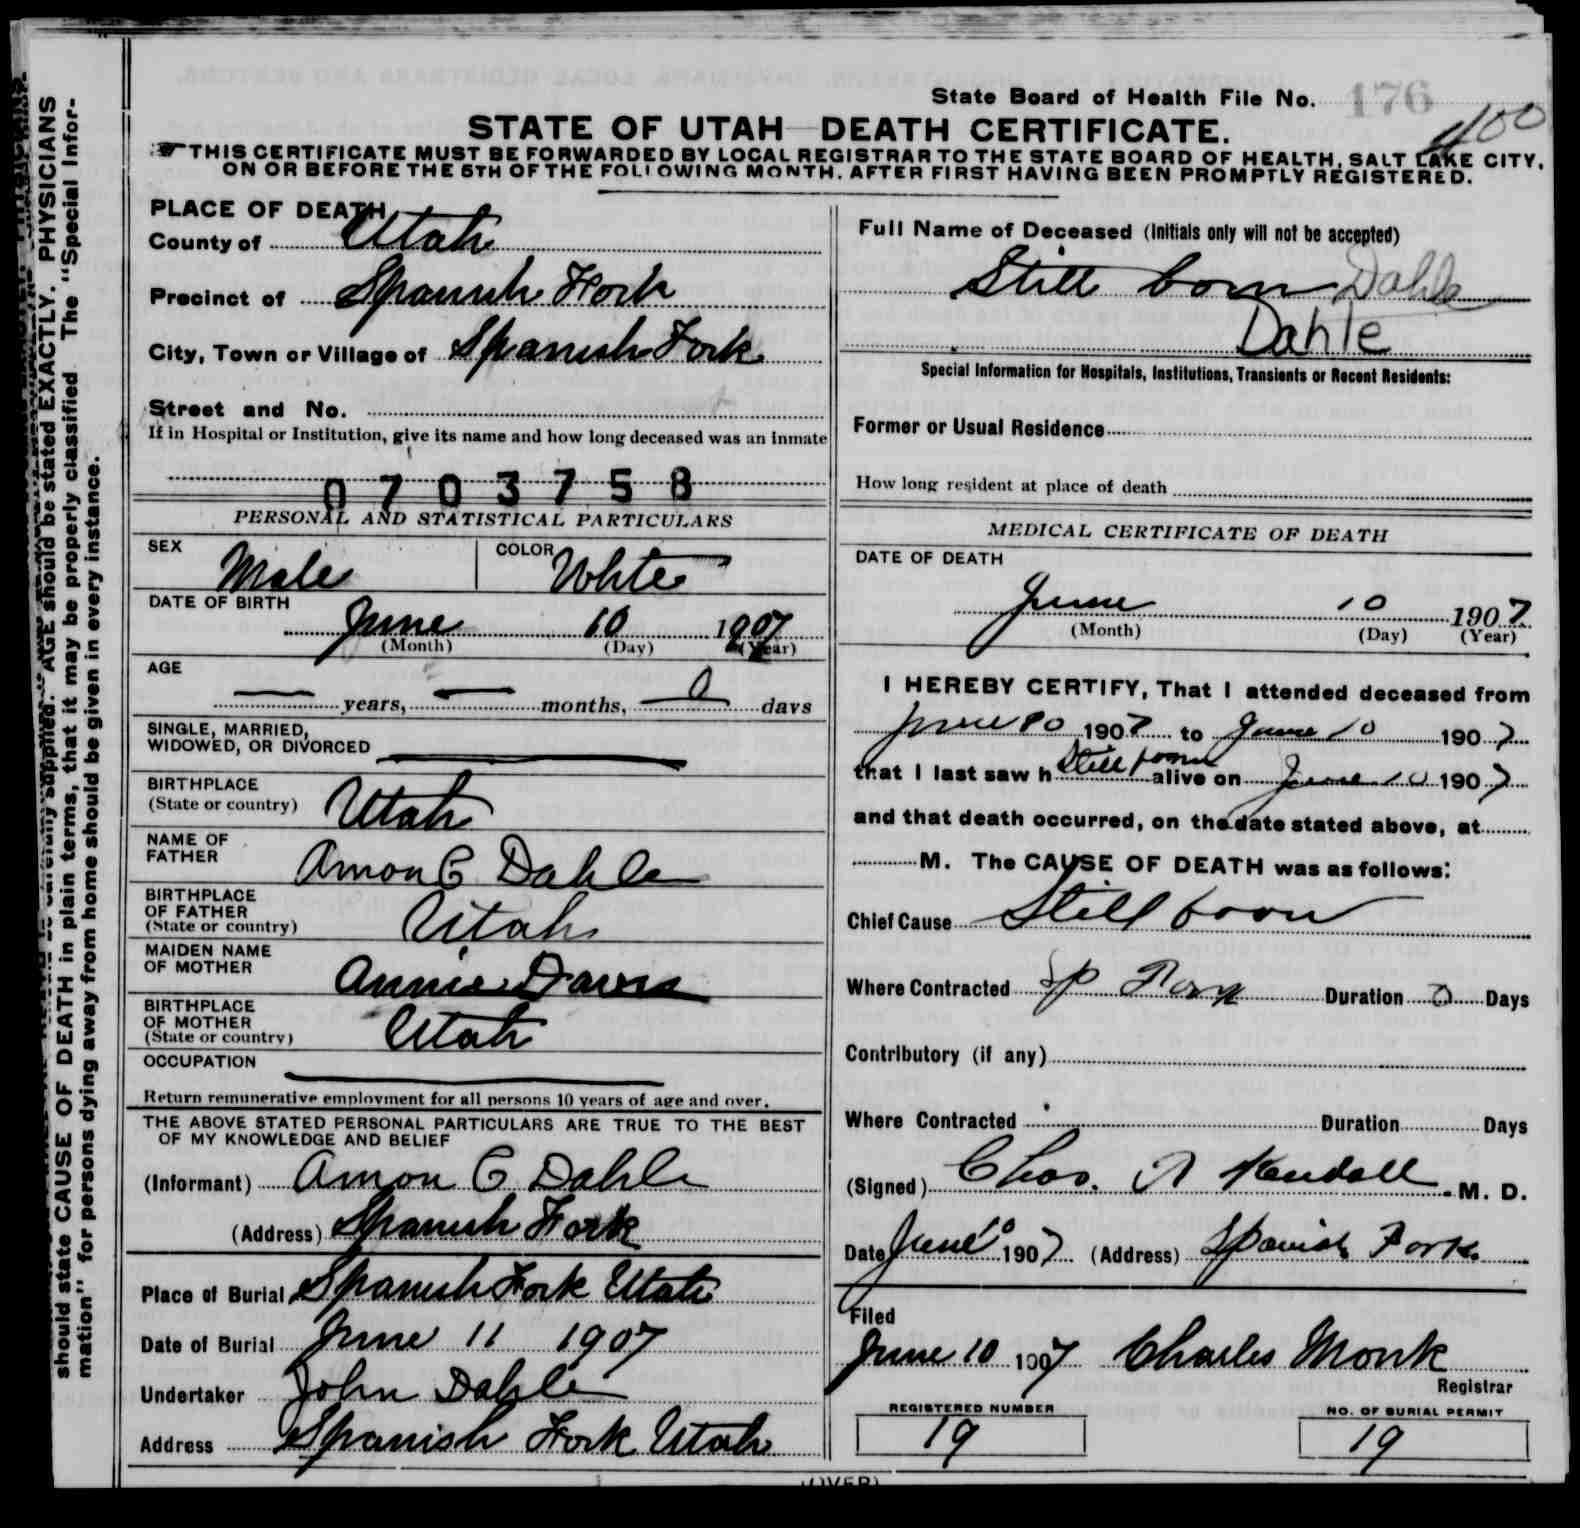 State Board of Health File No. 176
400
STATE OF UTAH—DEATH CERTIFICATE.
THIS CERTIFICATE MUST BE FORWARDED BY LOCAL REGISTRAR TO THE STATE BOARD OF HEALTH, SALT LAKE CITY,
ON OR BEFORE THE 5TH OF THE FOLLOWING MONTH, AFTER FIRST HAVING BEEN PROMPTLY REGISTERED.
AGE should be stated EXACTLY. PHYSICIANS
should state CAUSE OF DEATH in plain terms, that it may be properly classified The "Special Infor-
mation" for persons dying away from home should be given in every instance.
PLACE OF DEATH
County of Utah
Precinct of Spanish Fork
City, Town or Village of Spanish Fork
Street and No.
If in Hospital or Institution, give its name and how long deceased was an inmate
0703758
PERSONAL AND STATISTICAL PARTICULARS
SEX Male COLOR White
DATE OF BIRTH
June 10 1907
(Month) (Day) (Year)
AGE
— years, — months, 0 days
SINGLE, MARRIED,
WIDOWED, OR DIVORCED
BIRTHPLACE
(State or country) Utah
NAME OF
FATHER Amon C Dahle
BIRTHPLACE
OF FATHER
(State or country) Utah
MAIDEN NAME
OF MOTHER Annie Davis
BIRTHPLACE
OF MOTHER
(State or country) Utah
OCCUPATION
Return remunerative employment for all persons 10 years of age and over.
THE ABOVE STATED PERSONAL PARTICULARS ARE TRUE TO THE BEST
OF MY KNOWLEDGE AND BELIEF
(Informant) Amon C Dahle
(Address) Spanish Fork
Place of Burial Spanish Fork Utah
Date of Burial June 11 1907
Undertaker John Dahle
Address Spanish Fork Utah
Full Name of Deceased (Initials only will not be accepted)
Still born Dahle
Dahle
Special Information for Hospitals, Institutions, Transients or Recent Residents:
Former or Usual Residence
How long resident at place of death
MEDICAL CERTIFICATE OF DEATH
DATE OF DEATH
June 10 1907
(Month) (Day) (Year)
I HEREBY CERTIFY, That I attended deceased from
June 10 1907 to June 10 1907
that I last saw h Still born alive on June 10 1907
and that death occurred, on the date stated above, at
M. The CAUSE OF DEATH was as follows:
Chief Cause Still born
Where Contracted Sp Fork Duration 0 Days
Contributory (if any)
Where Contracted Duration Days
(Signed) Chas. A Kendall M. D.
Date June 10 1907 (Address) Spanish Fork
Filed
June 10 1907 Charles Monk
Registrar
REGISTERED NUMBER
19
NO. OF BURIAL PERMIT
19
(OVER)